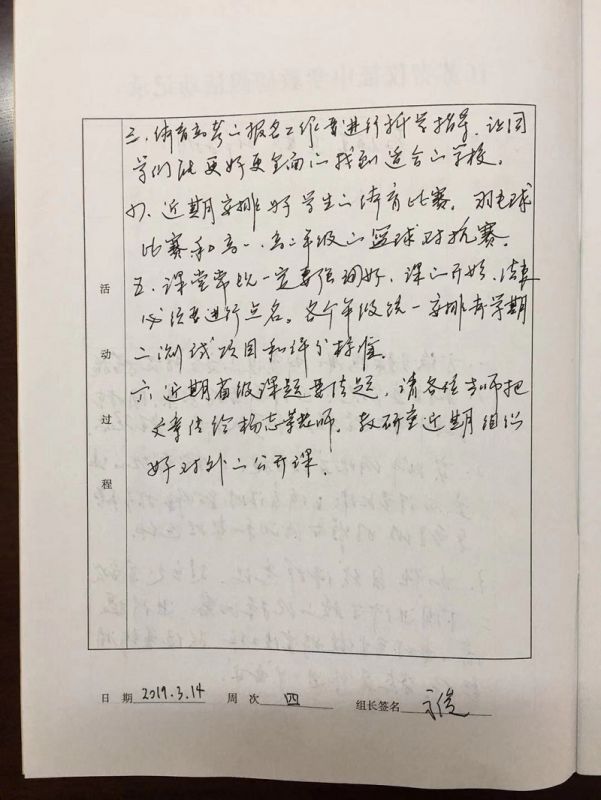 三、体育高考的报名工作要进行指导，让同
学们能更好更全面的找到适合的学校。
四、近期安排好学生的体育比赛，羽毛球
比赛和高一、高二年级的篮球对抗赛。
五、课堂常规一定要强调好，课的开始、结束
必须要进行点名。各个年级统一安排本学期
的测试项目和评分标准。
六、近期省级课题要结题，请各位老师把
文章传给杨志荣老师。教研室近期组织
好对外的公开课。
活动过程
日 期 2019.3.14 周 次 四 组长签名